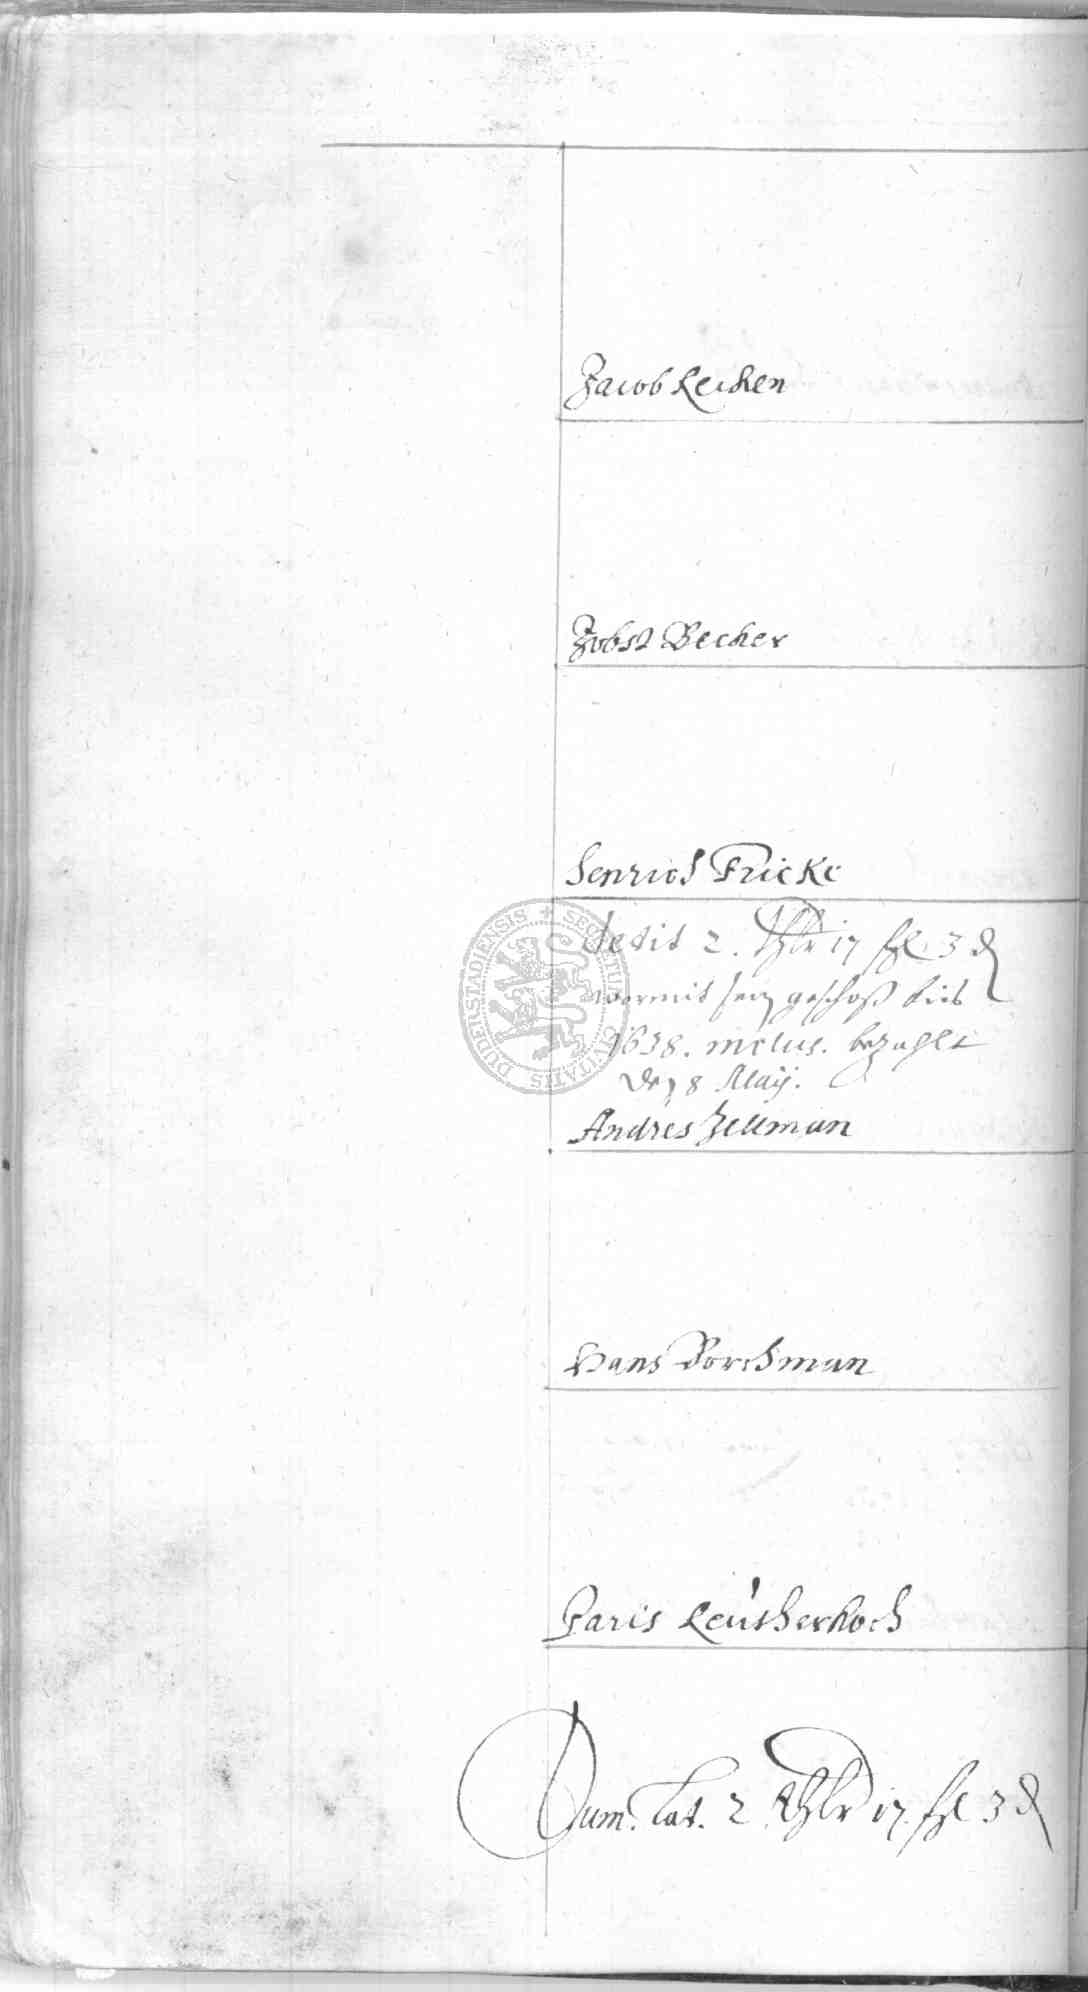 Jacob Lecken
Jobst Becker
Henrich Fricke
dedit 2. thlr 17 ßl 3 ₰
wormit sein geschoß biß
1638. inclus. bezahlt
den 8 Maÿ.
Andres Zellman
Hans Borchman
Paris Leutherkoch
Sum. Lat. 2 thlr 17 ßl 3 ₰
SECRETUM CIVITATIS DUDERSTADIENSIS